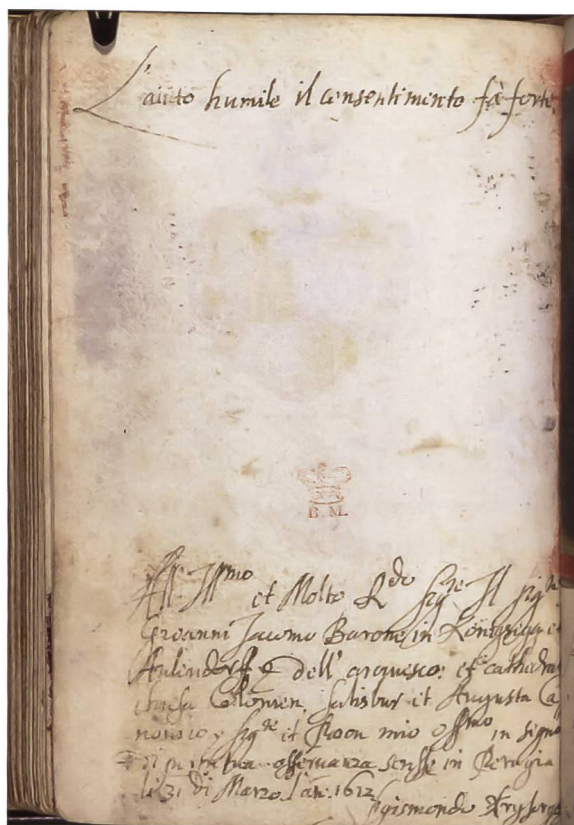 L'aiuto humile il consentimento fà forte.
B. M.
All' Ill^mo et Molto R^do Sig^re Il Sig^re
Giovanni Jacomo Barone in Königsegg et
Aulendorf dell' arcivesco: et cathedral
chiesa Colonien. Salisbur et Augusta Ca
nonico, Sig^re et Pron mio oss^mo in segno
di perpetua osservanza scrisse in Perugia
li 31 di Marzo. l'an. 1612
Sigismondo